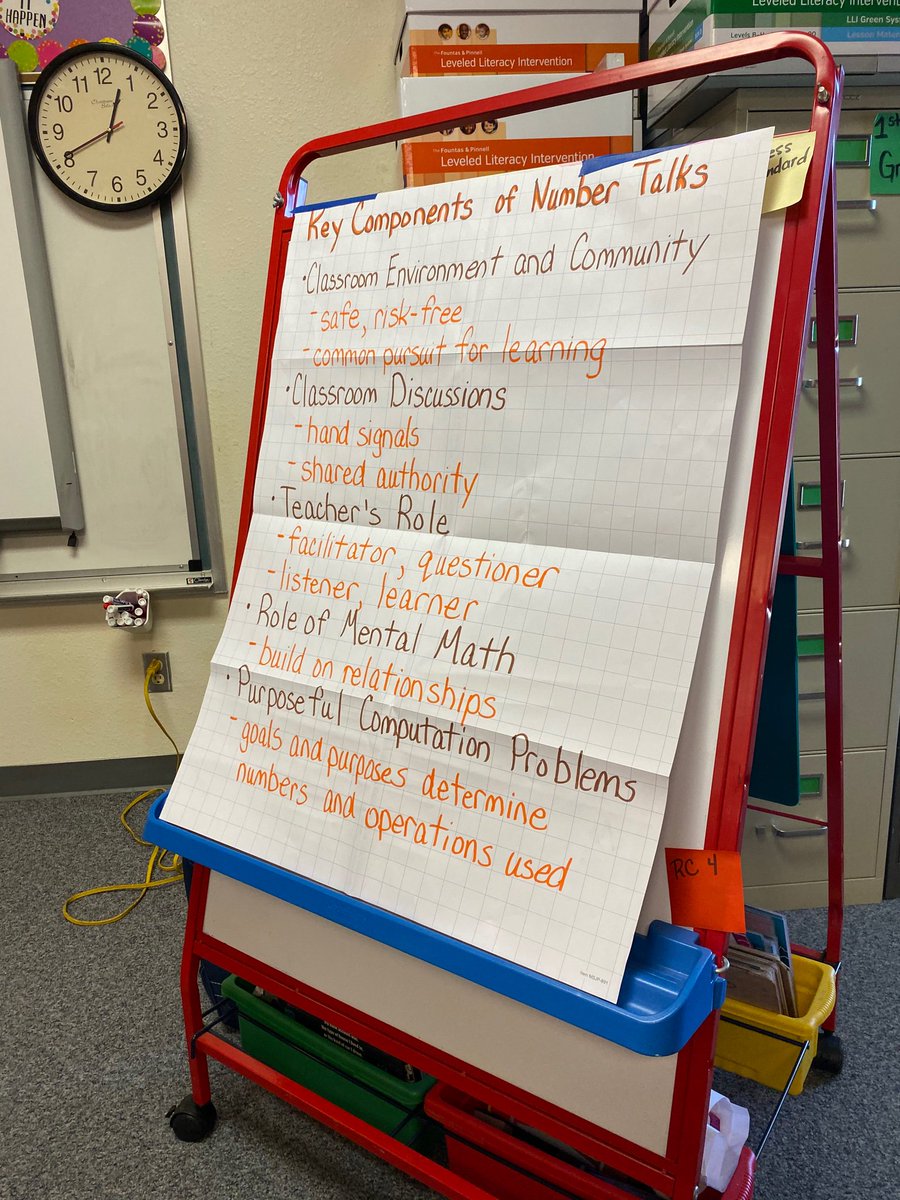 IT
HAPPEN
12
1
2
3
4
5
6
7
8
9
10
11
The Fountas & Pinnell
Leveled Literacy Intervention
The Fountas & Pinnell
Leveled Literacy Intervention
Leveled Literacy Intervention
LLI Green Sys
Lesson Mater
1st
Gr
ess
andard
Key Components of Number Talks
·Classroom Environment and Community
-safe, risk-free
-common pursuit for learning
·Classroom Discussions
-hand signals
-shared authority
·Teacher's Role
-facilitator, questioner
-listener, learner
·Role of Mental Math
-build on relationships
·Purposeful Computation Problems
-goals and purposes determine
numbers and operations used
RC 4